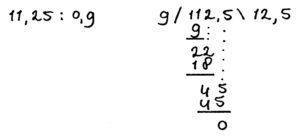 11,25 : 0,9
9 / 112,5 \ 12,5
9
22
18
45
45
0